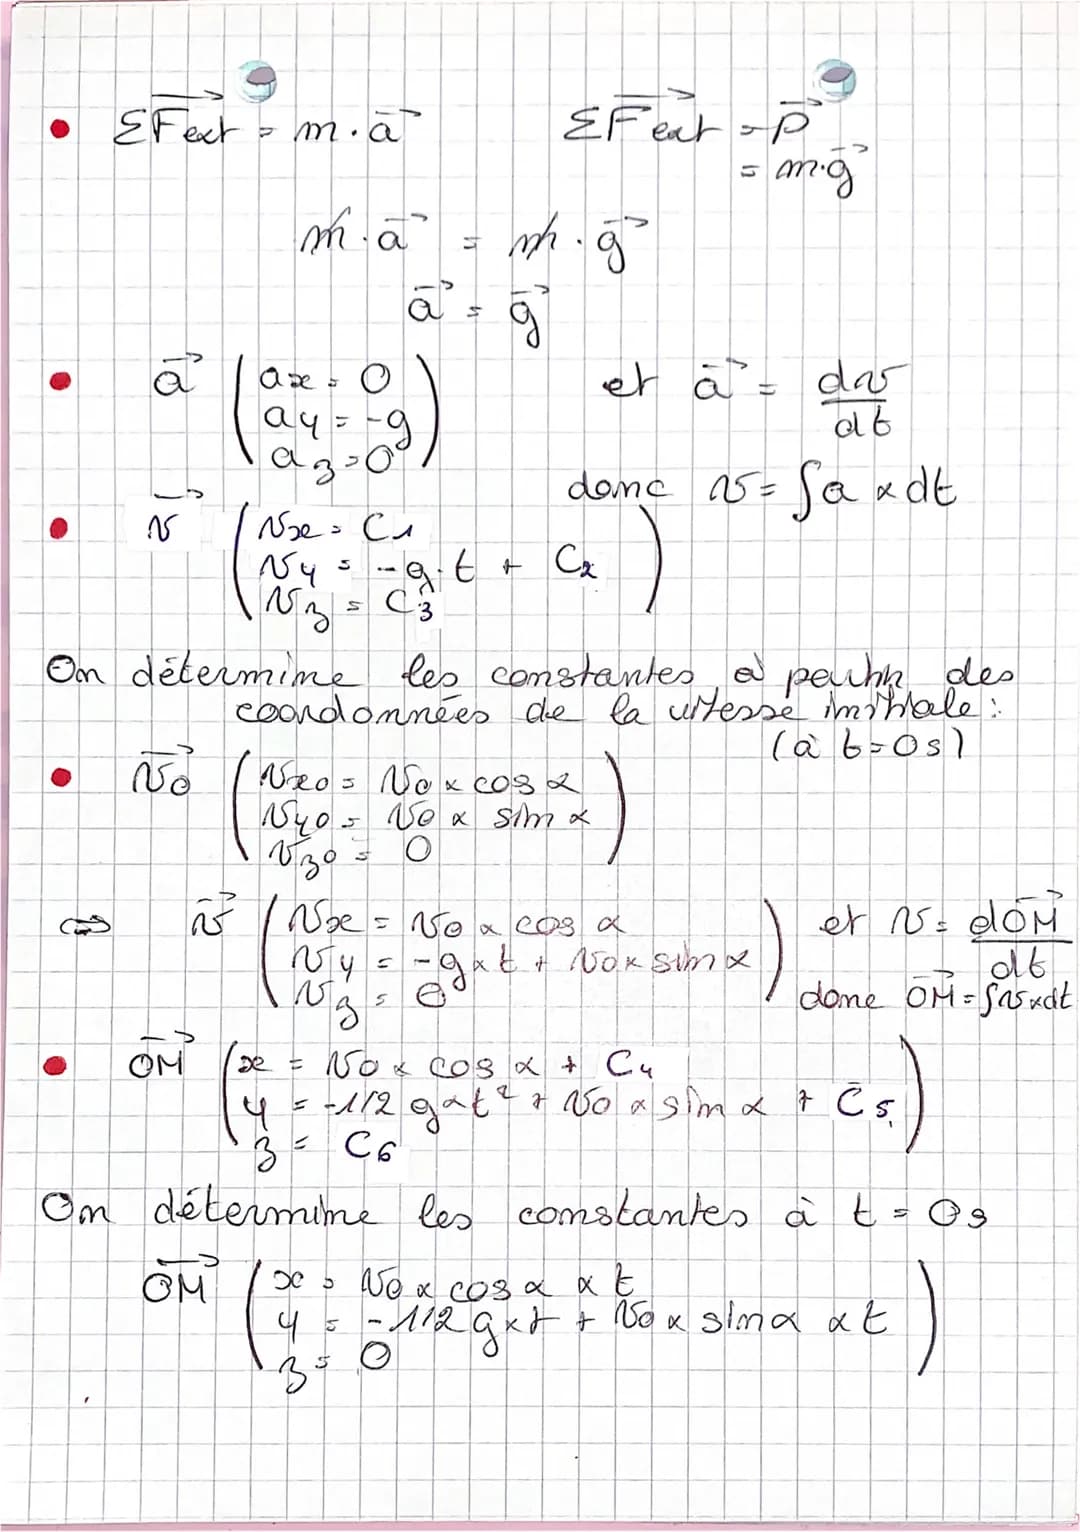 • ΣF⃗ext = m·a⃗    ΣF⃗ext = P⃗
= m·g⃗
m·a⃗ = m·g⃗
a⃗ = g⃗
• a⃗ ( ax = 0    et a⃗ = dv/dt
ay = -g
az = 0 )
donc v = ∫a × dt
• v⃗ ( vx = C1
vy = -g·t + C2
vz = C3 )
On détermine les constantes à partir des
coordonnées de la vitesse initiale :
(à t = 0s)
• v⃗0 ( vx0 = v0 × cos α
vy0 = v0 × sin α
vz0 = 0 )
⇔ v⃗ ( vx = v0 × cos α    et v = dOM⃗/dt
vy = -g×t + v0×sin α
vz = 0 )    donc OM⃗ = ∫v×dt
• OM⃗ ( x = v0 × cos α + C4
y = -1/2 g×t² + v0 × sin α + C5
z = C6 )
On détermine les constantes à t = 0s
OM⃗ ( x = v0 × cos α × t
y = -1/2 g×t + v0 × sin α × t
z = 0 )